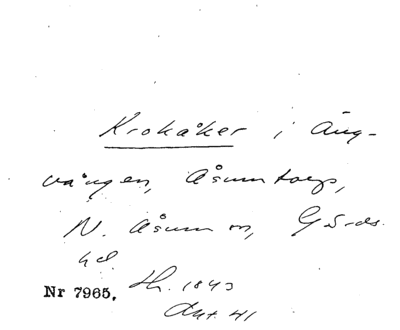 Krokåker i Äng-
vången, Åsumtorp,
N. Åsum sn, Gärds
hd.
Nr 7965. Th. 1843
Akt. 41